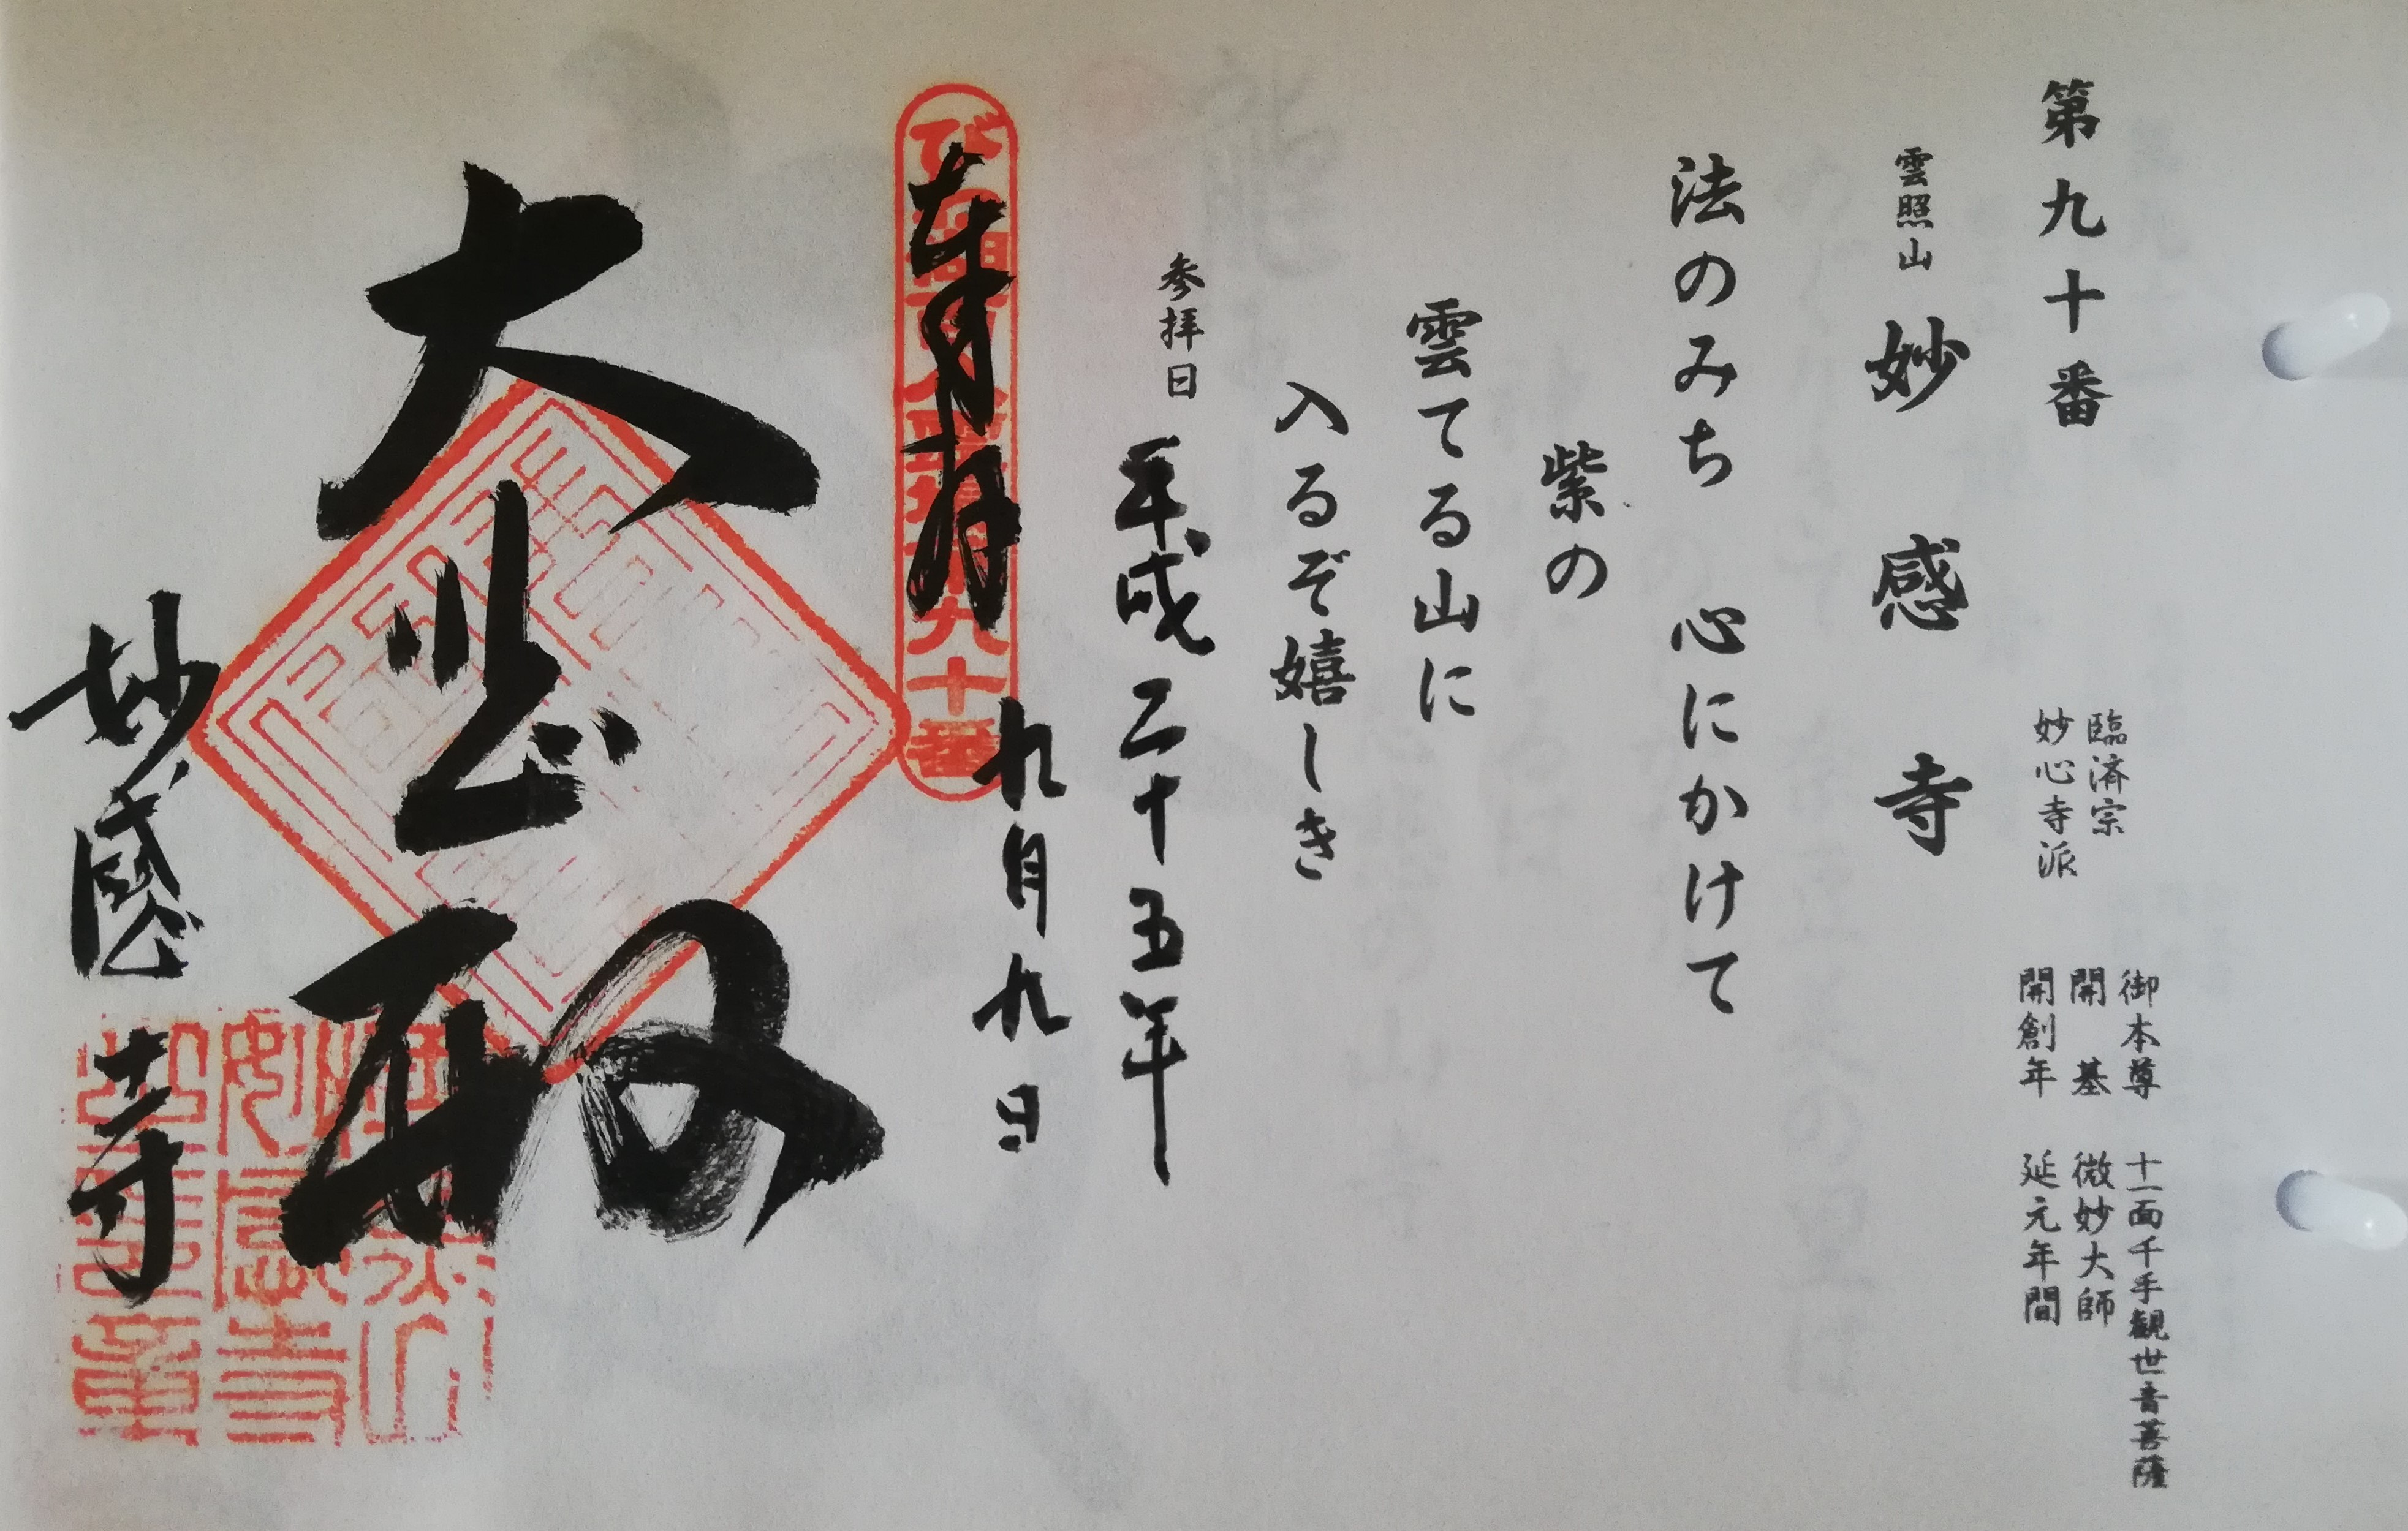 第九十番
臨済宗
妙心寺派
御本尊 十一面千手観世音菩薩
開基 微妙大師
開創年 延元年間
雲照山 妙感寺
法のみち 心にかけて
紫の
雲てる山に
入るぞ嬉しき
参拝日 平成二十五年
九月九日
奉拝
九十番
大悲殿
妙感寺